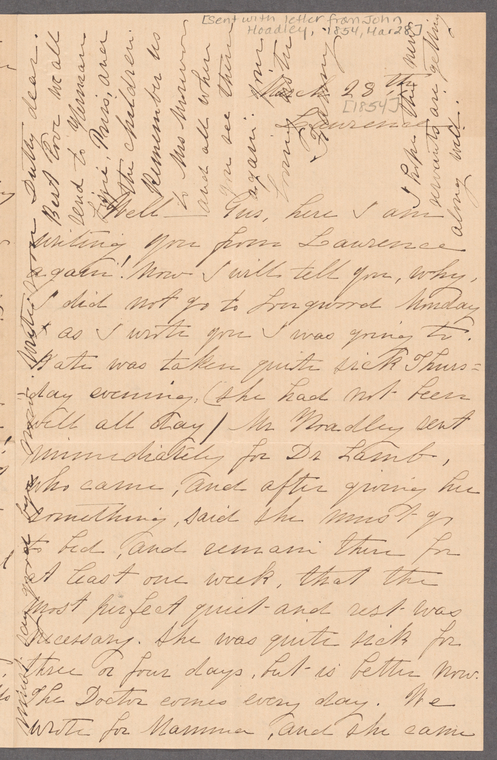 [Sent with letter from John
Hoadley, 1854, Mar 28]
March 28th
[1854]
Lawrence
Well — Gus, here I am
writing you from Lawrence
again! Now I will tell you, why,
I did not go to Longwood Monday
as I wrote you I was going to.
Kate was taken quite sick Thurs=
day evening, (she had not been
well all day) Mr Hoadley sent
immediately for Dr Lamb,
who came, and after giving her
something, said she must go
to bed, and remain there for
at least one week, that the
most perfect quiet and rest was
necessary. She was quite sick for
three or four days, but is better now.
The Doctor comes every day. We
wrote for Mamma, and she came
must say good bye now. Write soon
dear.
Best love we all
send to Herman
Lizzie, and
the children.
Remember us
to Mrs
and all when
you see them
again.
I hope the new
servants are getting
along well.